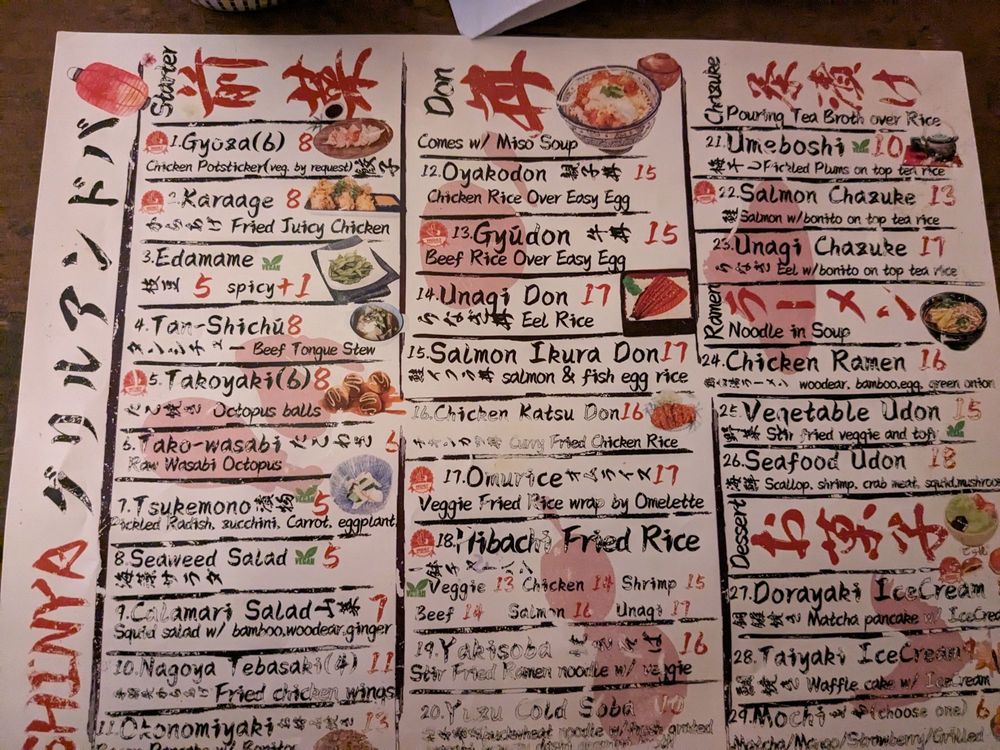 グリルアンドバ
SHINYA
Starter 前菜
1.Gyoza(6) 8
Chicken Potsticker(veg. by request) 餃子
2.Karaage 8
からあげ Fried Juicy Chicken
3.Edamame VEGAN
枝豆 5 spicy+1
4.Tan-Shichū 8
タンシチュー Beef Tongue Stew
5.Takoyaki(6) 8
たこ焼き Octopus balls
6.Tako-wasabi たこわさび 6
Raw Wasabi Octopus
7.Tsukemono 漬物 VEGAN 5
Pickled Radish. zucchini. Carrot. eggplant
8.Seaweed Salad VEGAN 5
海藻サラダ
9.Calamari Salad 7
Squid salad w/ bamboo,woodear,ginger
10.Nagoya Tebasaki(4) 11
Fried chicken wings
11.Okonomiyaki お好み焼き 13
Don 丼
Comes w/ Miso Soup
12.Oyakodon 親子丼 15
Chicken Rice Over Easy Egg
13.Gyūdon 牛丼 15
Beef Rice Over Easy Egg
14.Unagi Don 17
うなぎ丼 Eel Rice
15.Salmon Ikura Don 17
鮭イクラ丼 salmon & fish egg rice
16.Chicken Katsu Don 16
Curry Fried Chicken Rice
17.Omurice オムライス 17
Veggie Fried Rice wrap by Omelette
18.Hibachi Fried Rice
鉄チャーハン
Veggie 13 Chicken 14 Shrimp 15
Beef 14 Salmon 16 Unagi 17
19.Yakisoba 16
Stir Fried Ramen noodle w/ veggie
20.Yuzu Cold Soba
Chazuke 茶漬け
Pouring Tea Broth over Rice
21.Umeboshi 10
Pickled Plums on top tea rice
22.Salmon Chazuke 13
鮭 Salmon w/bonito on top tea rice
23.Unagi Chazuke 17
うなぎ Eel w/bonito on top tea rice
Ramen ラーメン
Noodle in Soup
24.Chicken Ramen 16
woodear. bamboo.egg. green onion
25.Vegetable Udon 15
野菜 Stir fried veggie and tofu VEGAN
26.Seafood Udon 18
海鮮 Scallop. shrimp. crab meat. squid.mushroom
Dessert お菓子
27.Dorayaki IceCream
銅鑼焼き Matcha pancake w/ IceCream
28.Taiyaki IceCream 9
鯛焼き Waffle cake w/ IceCream
29.Mochi (choose one) 6
Matcha/Mango/Strawberry/Grilled